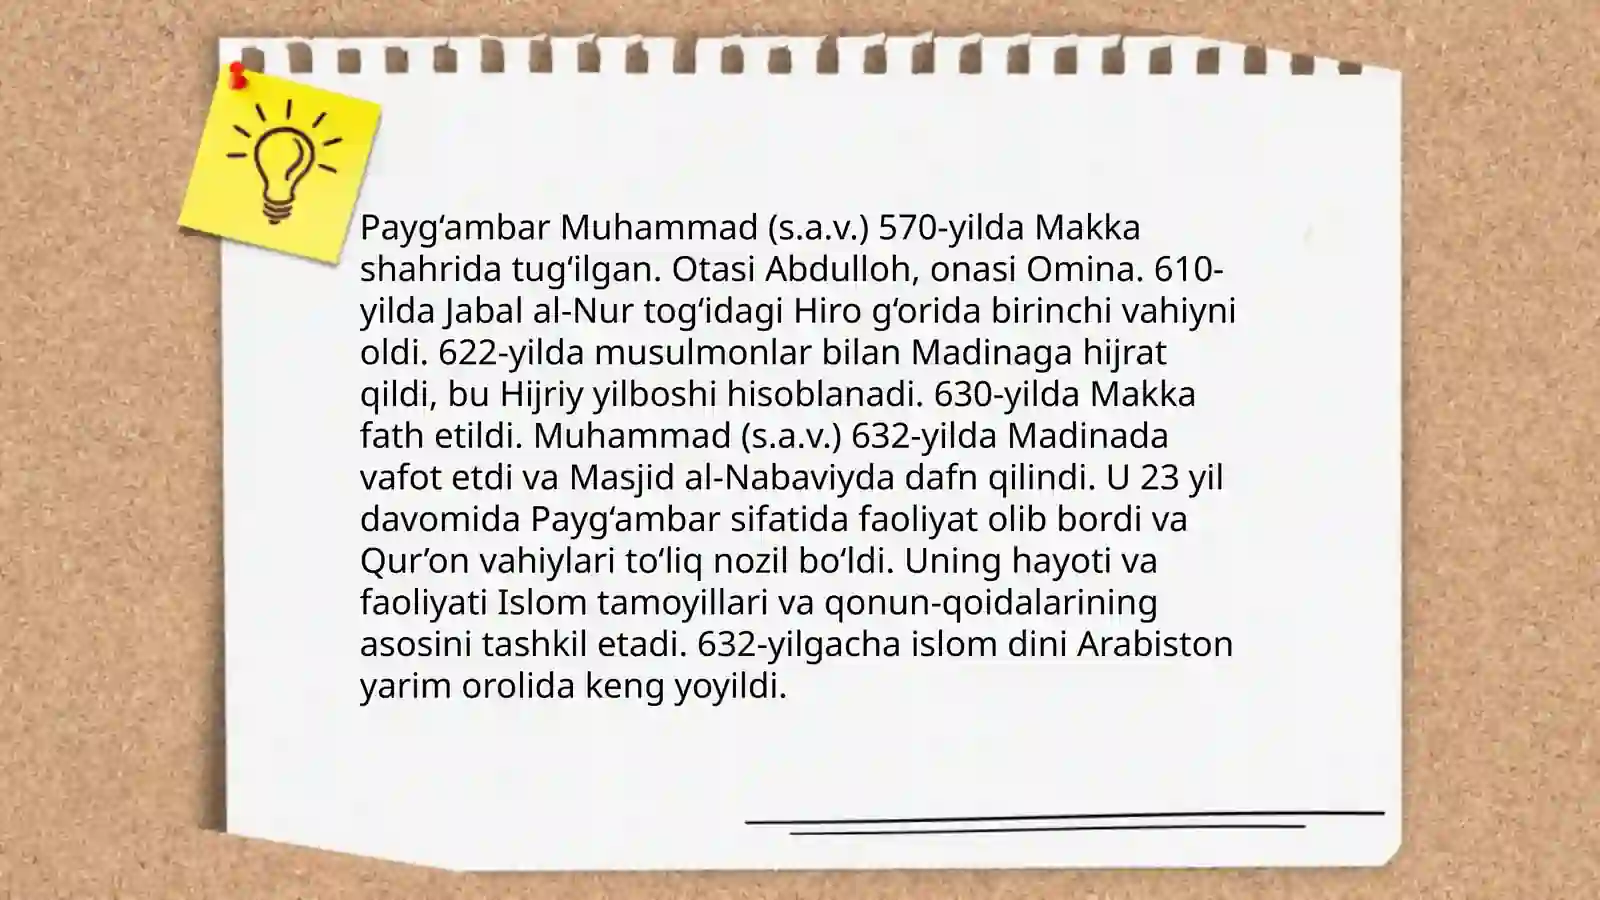 Payg‘ambar Muhammad (s.a.v.) 570-yilda Makka
shahrida tug‘ilgan. Otasi Abdulloh, onasi Omina. 610-
yilda Jabal al-Nur tog‘idagi Hiro g‘orida birinchi vahiyni
oldi. 622-yilda musulmonlar bilan Madinaga hijrat
qildi, bu Hijriy yilboshi hisoblanadi. 630-yilda Makka
fath etildi. Muhammad (s.a.v.) 632-yilda Madinada
vafot etdi va Masjid al-Nabaviyda dafn qilindi. U 23 yil
davomida Payg‘ambar sifatida faoliyat olib bordi va
Qur’on vahiylari to‘liq nozil bo‘ldi. Uning hayoti va
faoliyati Islom tamoyillari va qonun-qoidalarining
asosini tashkil etadi. 632-yilgacha islom dini Arabiston
yarim orolida keng yoyildi.